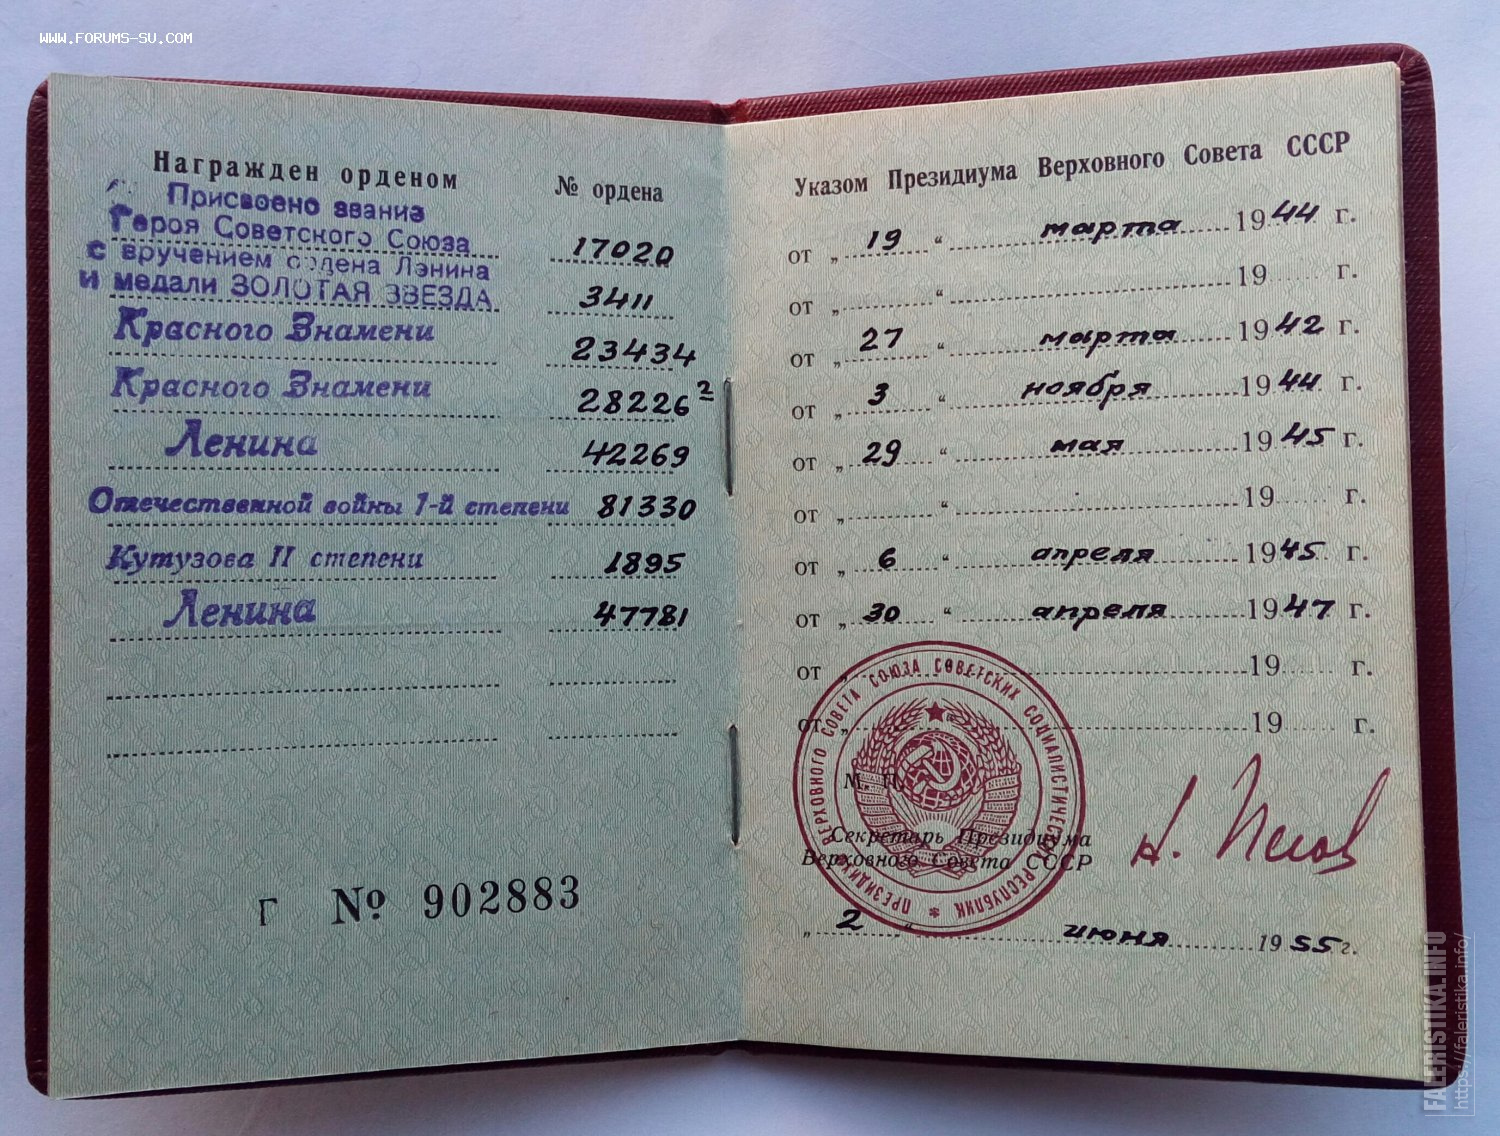 WWW.FORUMS-SU.COM
Награжден орденом № ордена
Присвоено звание
Героя Советского Союза 17020
с вручением ордена Ленина
и медали ЗОЛОТАЯ ЗВЕЗДА 3411
Красного Знамени 23434
Красного Знамени 28226 2
Ленина 42269
Отечественной войны 1-й степени 81330
Кутузова II степени 1895
Ленина 47781
Г № 902883
Указом Президиума Верховного Совета СССР
от „ 19 “ марта 1944 г.
от „ “ 19 г.
от „ 27 “ марта 1942 г.
от „ 3 “ ноября 1944 г.
от „ 29 “ мая 1945 г.
от „ “ 19 г.
от „ 6 “ апреля 1945 г.
от „ 30 “ апреля 1947 г.
от „ 19 г.
от „ 19 г.
М. П.
Секретарь Президиума
Верховного Совета СССР
ПРЕЗИДИУМ ВЕРХОВНОГО СОВЕТА СОЮЗА СОВЕТСКИХ СОЦИАЛИСТИЧЕСКИХ РЕСПУБЛИК *
Н. Пегов
„ 2 “ июня 1955 г.
FALERISTIKA.INFO
https://faleristika.info/